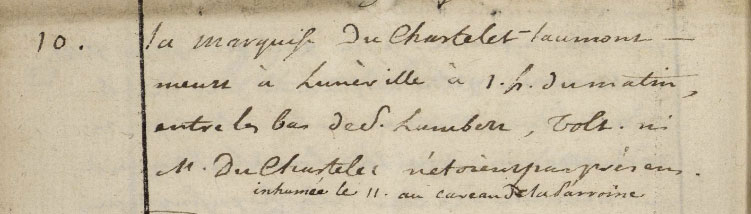 10. la marquise Du Chastelet-laumont —
meurt à Lunéville à 1. h. du matin,
entre les bas de S. Lambert, Volt. ni
M. Du Chastelet n'étoient pas présens.
inhumée le 11. au caveau de la Parroisse